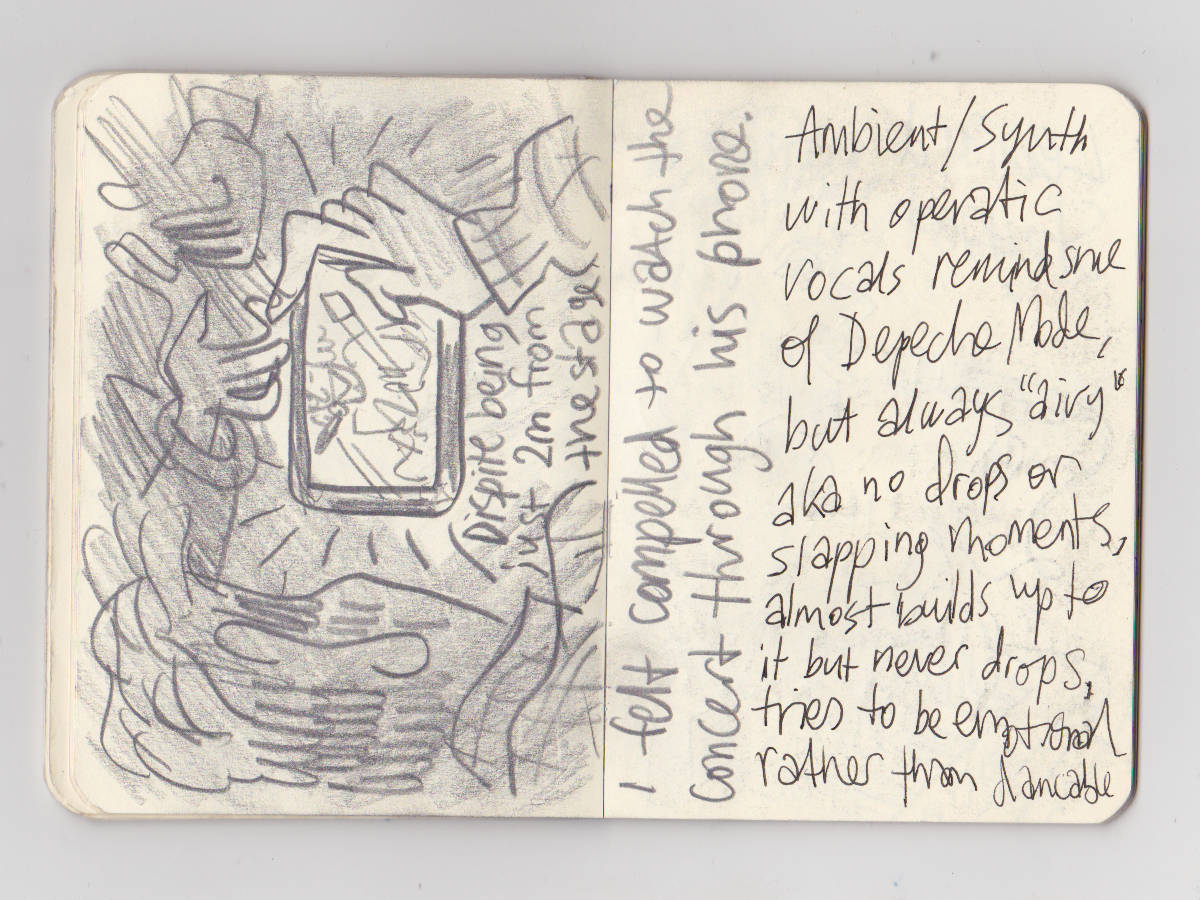 Dispite being
just 2m from
the stage
I felt compelled to watch the
concert through his phone.
Ambient/Synth
with operatic
vocals reminds me
of Depeche Mode,
but always "airy"
aka no drops or
slapping moments,
almost builds up to
it but never drops,
tries to be emotional
rather than dancable